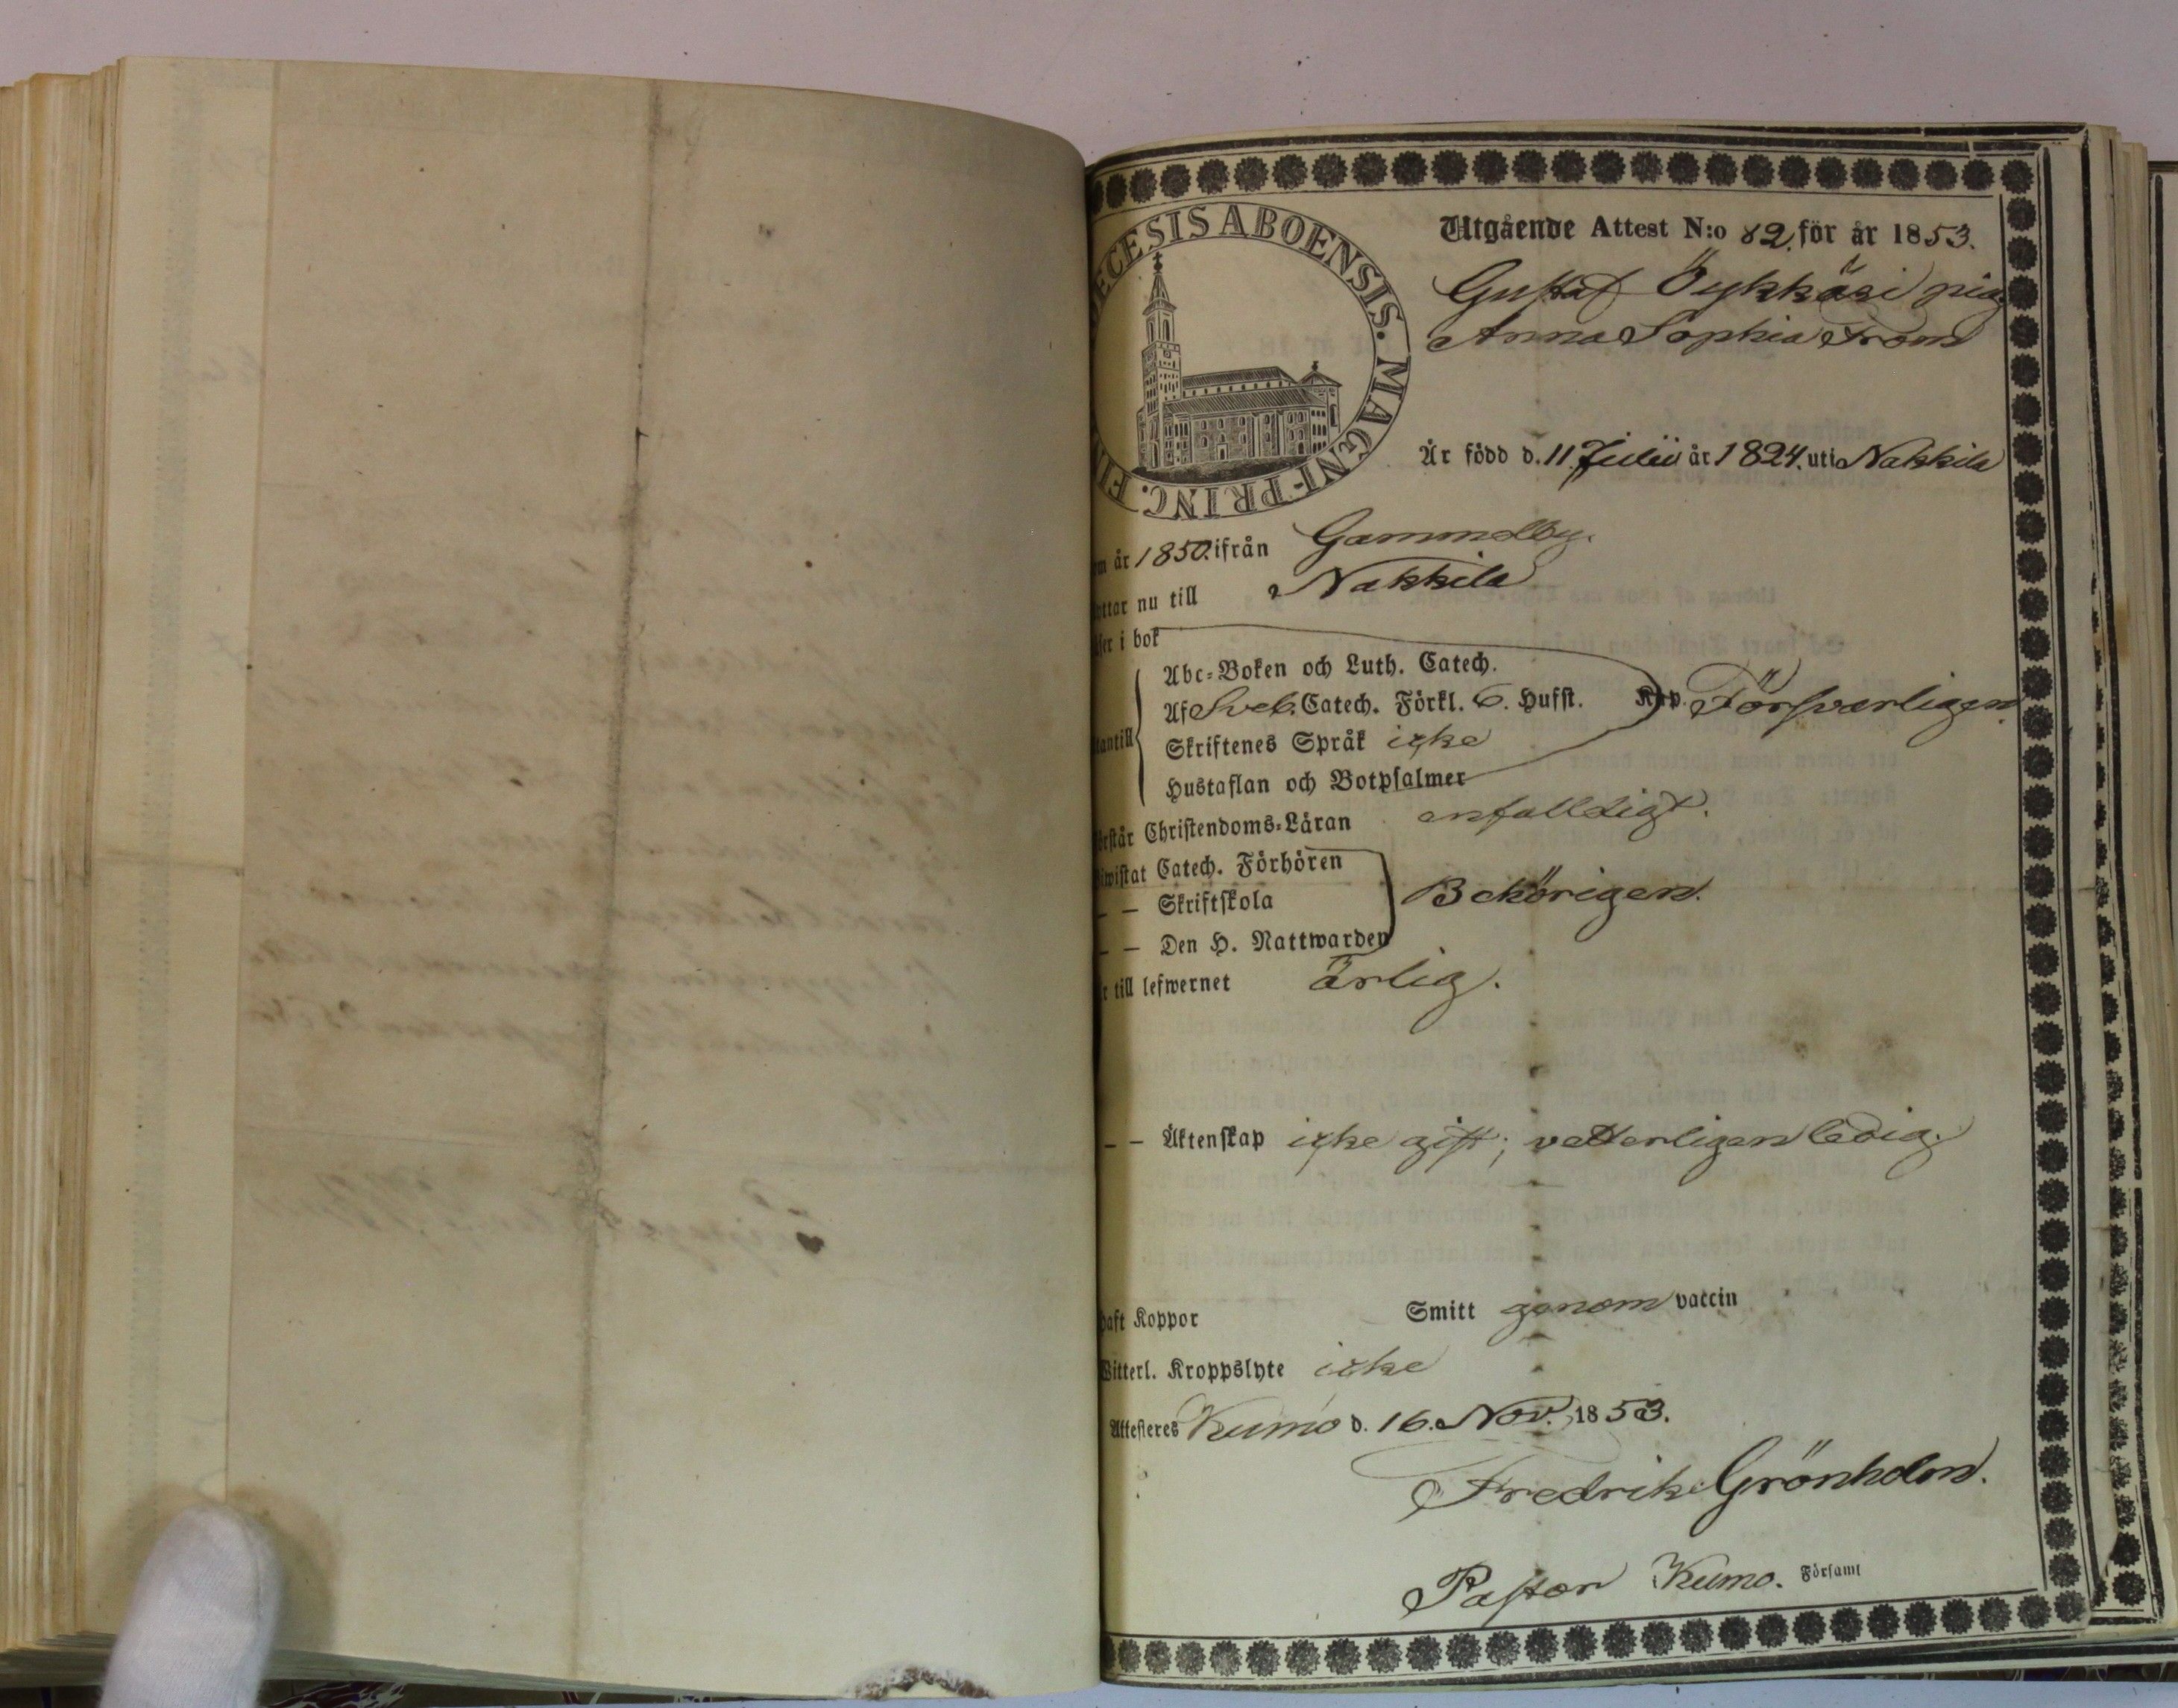 DECESIS ABOENSIS. MAGNI-PRINC. FI
Utgående Attest N:o 82. för år 1853.
Gustaf Öykkäri pig
Anna Sophia From
Är född d. 11. Julii år 1824. uti Nakkila
om år 1850. ifrån Gammelby.
yttar nu till Nakkila
äser i bok
Abc-Boken och Luth. Catech.
Af Sveb. Catech. Förkl. 6. Hufst. Kap. Försvarligen
utantill
Skriftenes Språk icke
Hustaflan och Botpsalmer
örstår Christendoms-Läran enfalldigt.
iwistat Catech. Förhören
— — Skriftskola Behörigen.
— — Den H. Nattwarden
r till lefwernet ärlig.
— — Äktenskap icke gift; vetterligen ledig.
haft Koppor Smitt genom vaccin
Witterl. Kroppslyte icke
Attesteres Kumo d. 16. Nov. 1853.
Fredrik Grönholm.
Pastor Kumo. Församl